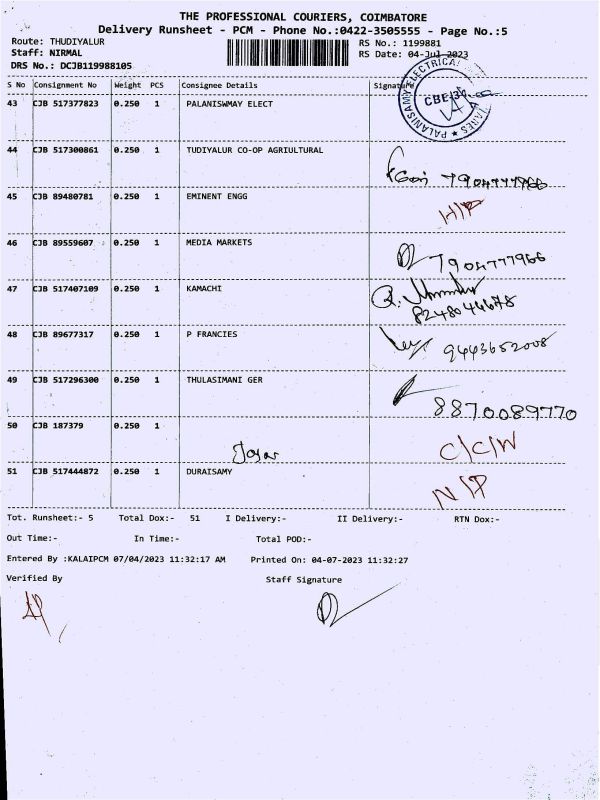 THE PROFESSIONAL COURIERS, COIMBATORE
Delivery Runsheet - PCM - Phone No.:0422-3505555 - Page No.:5
Route: THUDIYALUR
RS No.: 1199881
Staff: NIRMAL
RS Date: 04-Jul-2023
DRS No.: DCJB119988105
S No Consignment No Weight PCS Consignee Details Signature
PALANISAMY ELECTRICAL
CBE
43 CJB 517377823 0.250 1 PALANISWMAY ELECT
44 CJB 517300861 0.250 1 TUDIYALUR CO-OP AGRIULTURAL
7904777966
45 CJB 89480781 0.250 1 EMINENT ENGG
H/P
46 CJB 89559607 0.250 1 MEDIA MARKETS
7904777966
47 CJB 517407109 0.250 1 KAMACHI
8248044678
48 CJB 89677317 0.250 1 P FRANCIES
9443652008
49 CJB 517296300 0.250 1 THULASIMANI GER
8870089770
50 CJB 187379 0.250 1
C/C/W
51 CJB 517444872 0.250 1 DURAISAMY
N/P
Tot. Runsheet:- 5 Total Dox:- 51 I Delivery:- II Delivery:- RTN Dox:-
Out Time:- In Time:- Total POD:-
Entered By :KALAIPCM 07/04/2023 11:32:17 AM Printed On: 04-07-2023 11:32:27
Verified By Staff Signature